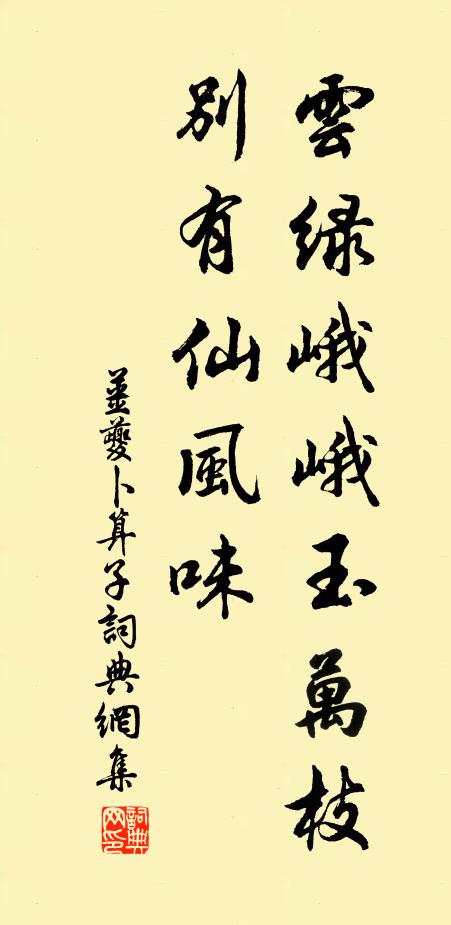 雲綠峨峨玉萬枝
別有仙風味
姜夔卜算子詞典網集
詞典網印